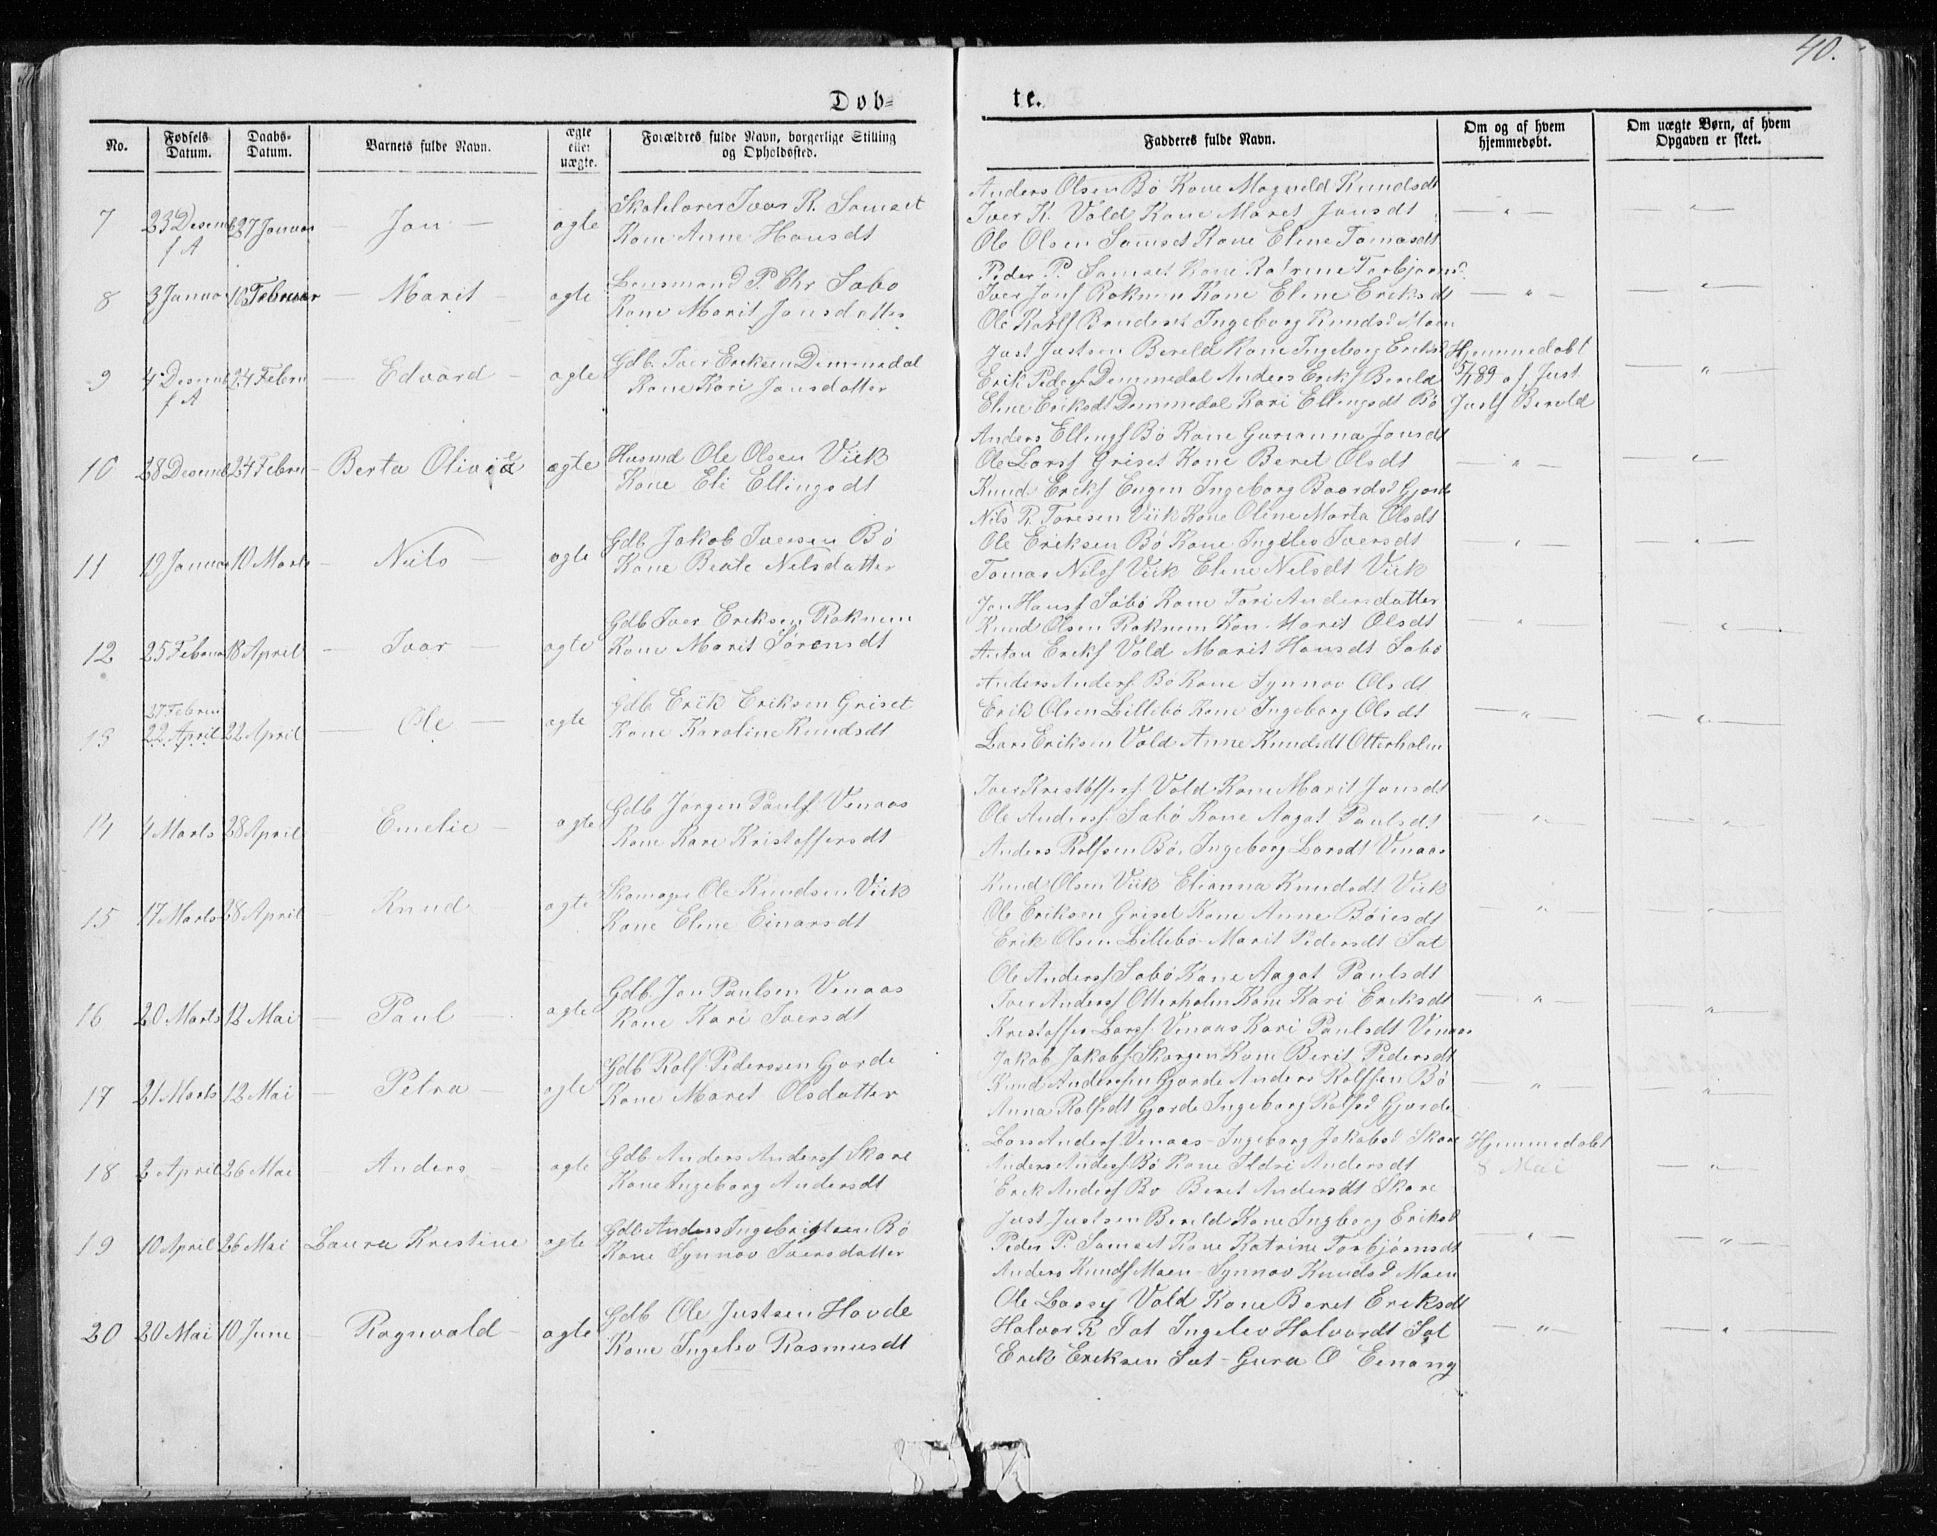 40.
Døb=
te.
No.
Fødsels Datum.
Daabs- Datum.
Barnets fulde Navn.
ægte eller uægte.
Forældres fulde Navn, borgerlige Stilling og Opholdssted.
Fadderes fulde Navn.
Om og af hvem hjemmedøbt.
Om uægte Børn, af hvem Opgaven er skeet.
7 23 Desemb f A 27 Januar — Jon — ægte
Skolelærer Ivar R. Samset
Kone Anne Hansdt
Anders Olsen Bø Kone Magnild Knudsdt
Iver K. Vold Kone Maret Jonsdt
Ole Olsen Samset Kone Eline Tomasdt
8 3 Januar 10 Februar — Marit — ægte
Lensmand P. Chr Sæbø
Kone Marit Jonsdatter
Peder P. Samset Kone Katrine Torbjørnsd
Iver Jonf Roknem Kone Eline Eriksdt
Ole Rolf Knudsd Moen
9 4 Desemb f A 24 Febru — Edvard — ægte
Gdb. Iver Eriksen Demmedal
Kone Kari Jonsdatter
Just Justsen Bereld Kone Ingeborg Eriksd
Erik Pedesf Demmedal Anders Erikf Bereld
Eline Eriksdt Demmedal Kari Ellingsdt Bø
Hjemmedøbt
5/1 89 af Just
Justf Bereld
10 28 Desemb 24 Febru — Berta Olivie ægte
Husmd Ole Olsen Viik
Kone Eli Ellingsdt
Anders Ellingf Bø Kone Gurianna Jonsdt
Ole Larsf Griset Kone Beret Olsdt
Knud Erikf Engen Ingeborg Baardsd Gjørde
11 19 Januar 10 Marts — Nils — ægte
Gdb Jakob Iversen Bø
Kone Beate Nilsdatter
Nils R. Toresen Viik Kone Oline Marta Olsdt
Ole Eriksen Bø Kone Ingelev Iversdt
Tomas Nilsf Viik Eline Nilsdt Viik
12 25 Februar 18 April — Ivar — ægte
Gdb Iver Eriksen Roknem
Kone Marit Sørensdt
Jon Hansf Sæbø Kone Tori Andersdatter
Knud Olsen Roknem Kon Marit Olsdt
Anton Erikf Vold Marit Hansdt Sæbø
13 27 Febru 22 April 22 April — Ole — ægte
Gdb Erik Eriksen Griset
Kone Karoline Knudsdt
Anders Andersf Bø Kone Synnøv Olsdt
Erik Olsen Lillebø Kone Ingeborg Olsdt
Lars Eriksen Vold Anne Knudsdt Otterholm
14 4 Marts 28 April Emelie — ægte
Gdb Jørgen Paulsf Venaas
Kone Kari Kristoffersdt
Iver Kristoffersf Vold Kone Marit Jonsdt
Ole Andersf Sæbø Kone Aagot Paulsdt
Anders Rolfsen Bø, Ingeborg Larsdt Venaas
15 17 Marts 28 April Knud ægte
Skomager Ole Knudsen Viik
Kone Eline Einarsdt
Knud Olsen Viik Elianna Knudsdt Viik
Ole Eriksen Griset Kone Anne Bøiesdt
Erik Olsen Lillebø Marit Pedersdt Sæt
16 20 Marts 12 Mai — Paul — ægte
Gdb. Jon Paulsen Venaas
Kone Kari Iversdt
Ole Andersf Sæbø Kone Aagot Paulsdt
Iver Andersf Otterholm Kone Kari Eriksdt
Kristoffer Larsf Venaas Kari Paulsdt Venaas
17 21 Marts 12 Mai — Petra — ægte
Gdb Rolf Pederssen Gjørde
Kone Maret Olsdatter
Jakob Jakobf. Skorgen Kone Berit Pedersdt
Knud Anderssen Gjørde Anders Rolfsen Bø
Anna Rolfsdt Gjørde Ingeborg Rolfsd Gjørde
18 2 April 26 Mai — Anders — ægte
Gdb Anders Andersf Skare
Kone Ingeborg Andersdt
Lars Andersf Venaas — Ingeborg Jakobsd Skare
Anders Andersf Bø Kone Ildri Andersdt
Erik Andersf Bø Beret Andersdt Skare
Hjemmedøbt
8 Mai
19 10 April 26 Mai Laura Kristine ægte
Gdb Anders Ingebrigtsen Bø
Kone Synnøv Iversdatter
Just Justsen Bereld Kone Ingborg Eriksd
Peder P. Samset Kone Katrine Torbjørnsdt
Anders Knudsf Moen — Synnøv Knudsd Moen
20 20 Mai 10 June — Ragnvald — ægte
Gdb Ole Justsen Hovde
Kone Ingelev Rasmusdt
Ole Vold Kone Beret Eriksdt
Halvor R Sæt Ingelev Halvordt Sæt
Erik Eriksen Sæt — Gura O Einang